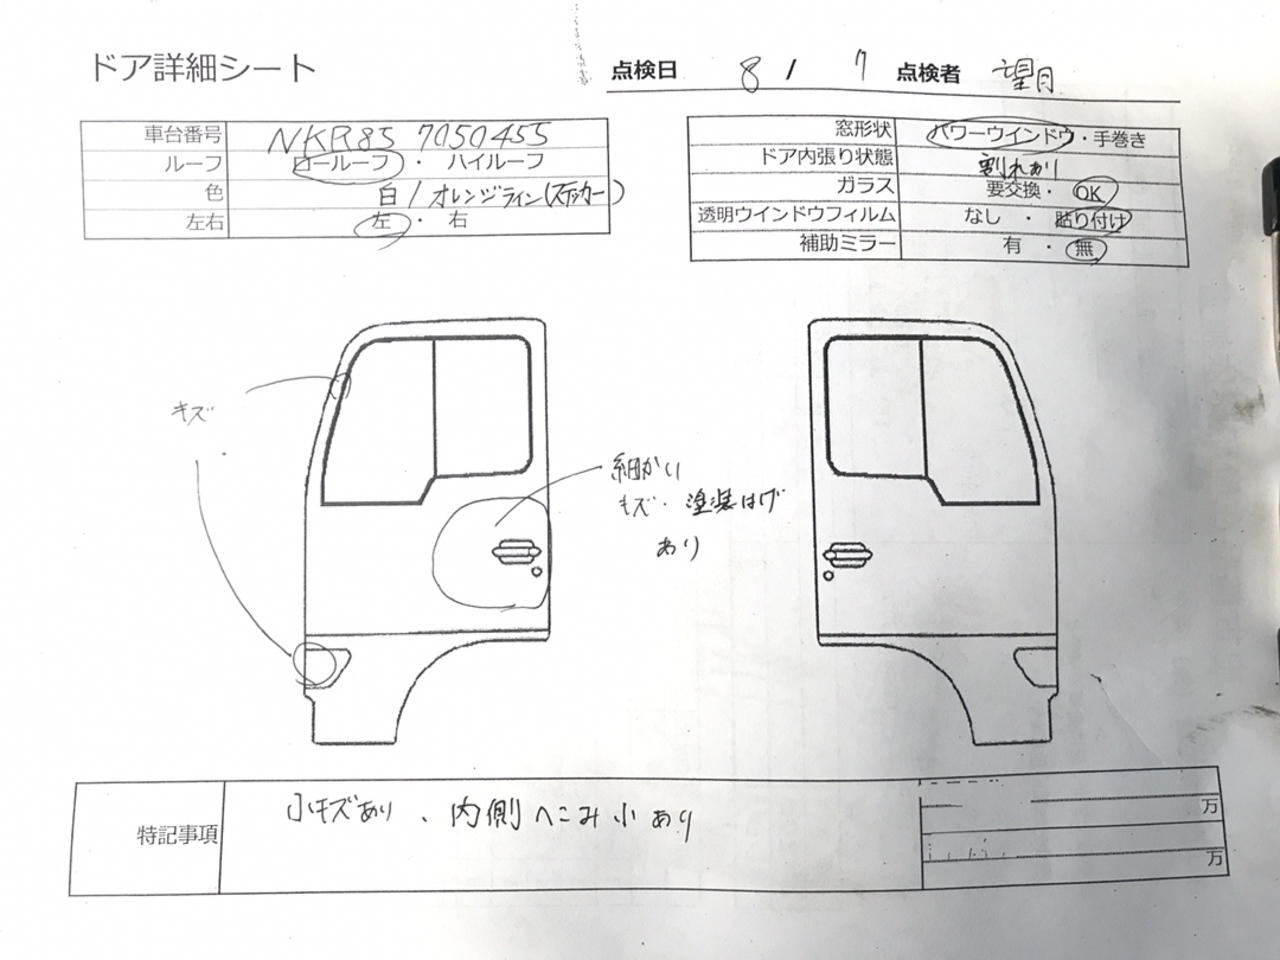 ドア詳細シート
点検日 8 / 7 点検者 望月
車台番号 NKR85 7050455
ルーフ ロールーフ ・ ハイルーフ
色 白 / オレンジライン(ステッカー)
左右 左 ・ 右
窓形状 パワーウインドウ・手巻き
ドア内張り状態 割れあり
ガラス 要交換・ OK
透明ウインドウフィルム なし ・ 貼り付け
補助ミラー 有 ・ 無
キズ
細かい
キズ・塗装はげ
あり
特記事項 小キズあり 、内側へこみ小あり
万
万